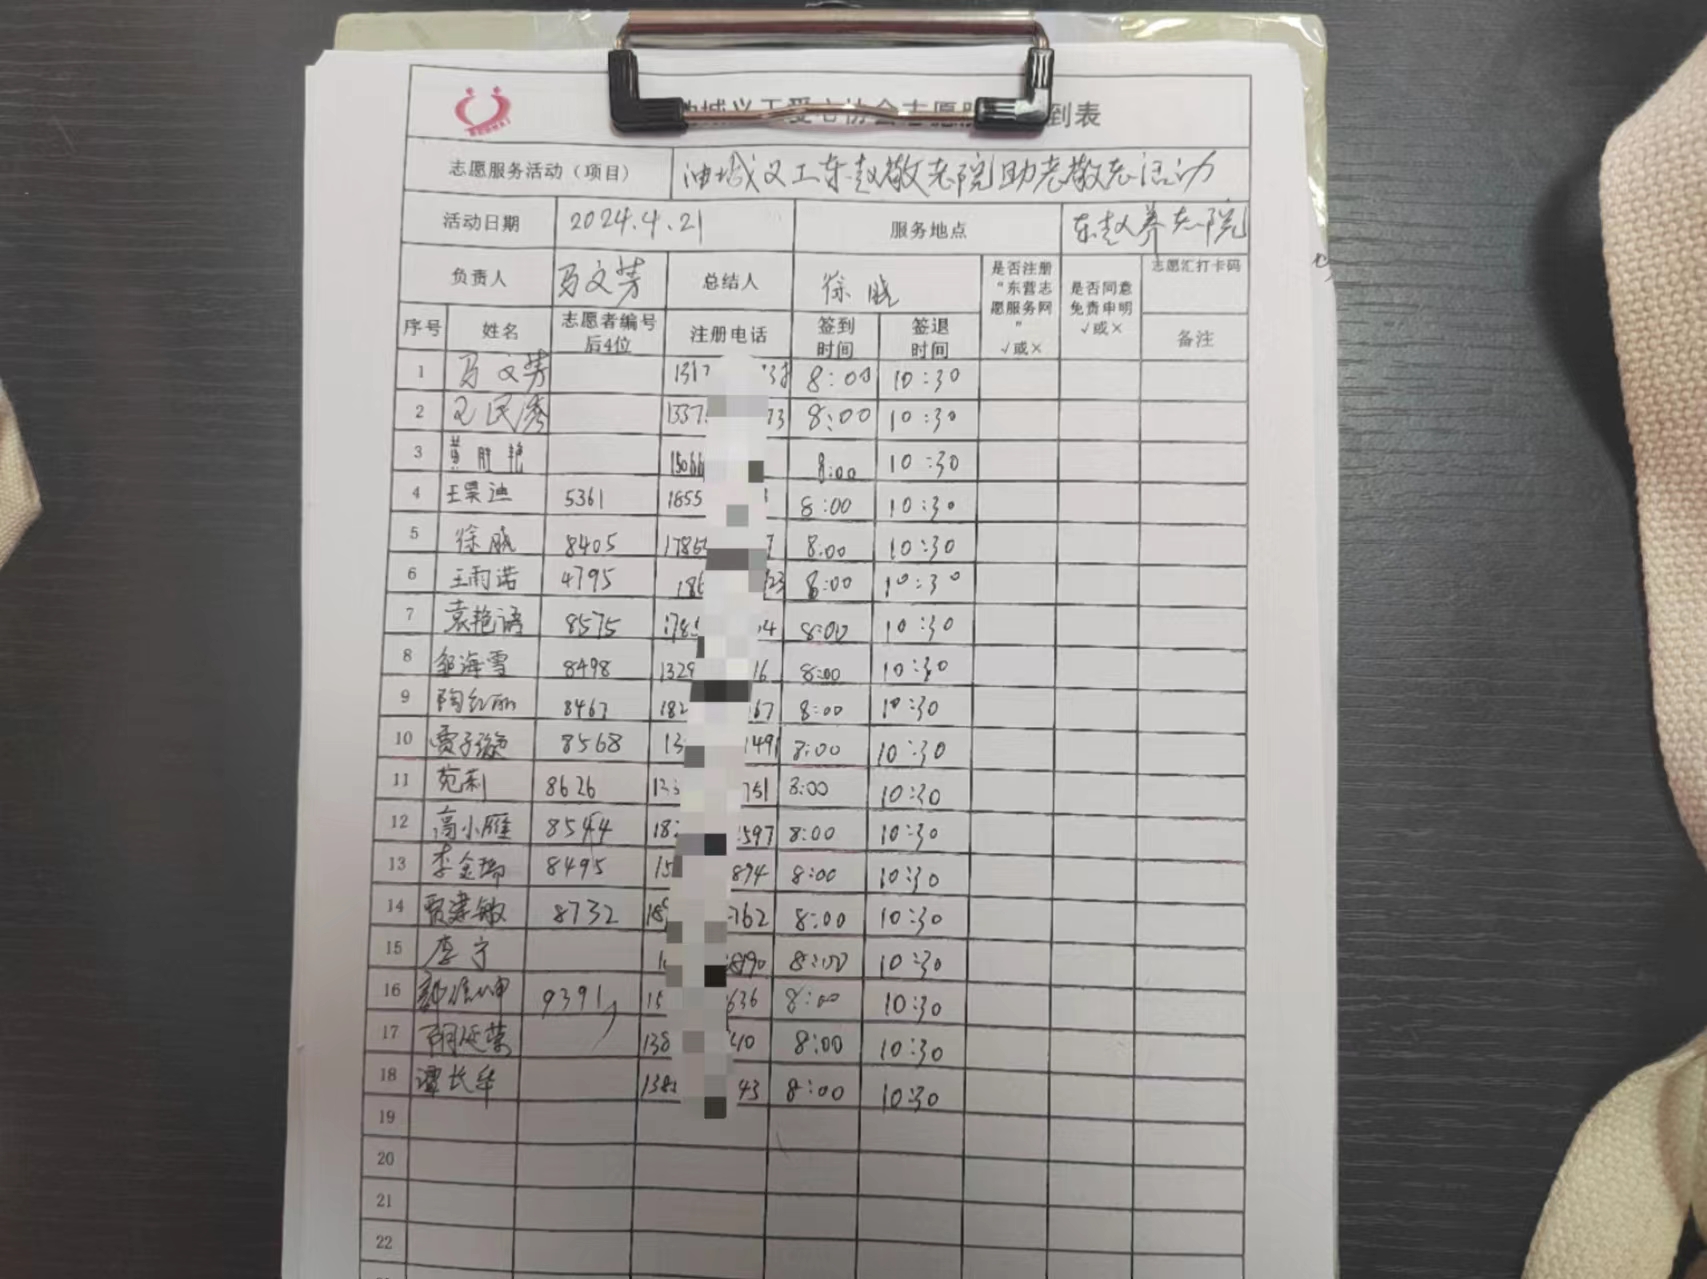 油城义工爱心协会志愿服 到表
志愿服务活动（项目） 油城义工东赵敬老院助老敬老活动
活动日期 2024.4.21 服务地点 东赵养老院
负责人 马文芳 总结人 徐晓 是否注册“东营志愿服务网” √或× 是否同意免责申明 √或× 志愿汇打卡码
序号 姓名 志愿者编号后4位 注册电话 签到时间 签退时间 备注
1 马文芳 8:00 10:30
2 王民秀 1337 73 8:00 10:30
3 黄胜艳 15066 8:00 10:30
4 王昊迪 5361 1855 8:00 10:30
5 徐晓 8405 1786 8:00 10:30
6 王雨诺 4795 186 23 8:00 10:30
7 袁艳语 8575 178 04 8:00 10:30
8 邹海雪 8498 1329 16 8:00 10:30
9 陶红丽 8467 182 67 8:00 10:30
10 贾子璇 8568 13 1491 8:00 10:30
11 苑莉 8626 133 751 8:00 10:30
12 高小雁 8544 18 597 8:00 10:30
13 李金瑞 8495 15 894 8:00 10:30
14 贾建敏 8732 18 762 8:00 10:30
15 李宁 890 8:00 10:30
16 9391 15 636 8:00 10:30
17 胡延荣 138 40 8:00 10:30
18 谭长华 138 43 8:00 10:30
19
20
21
22